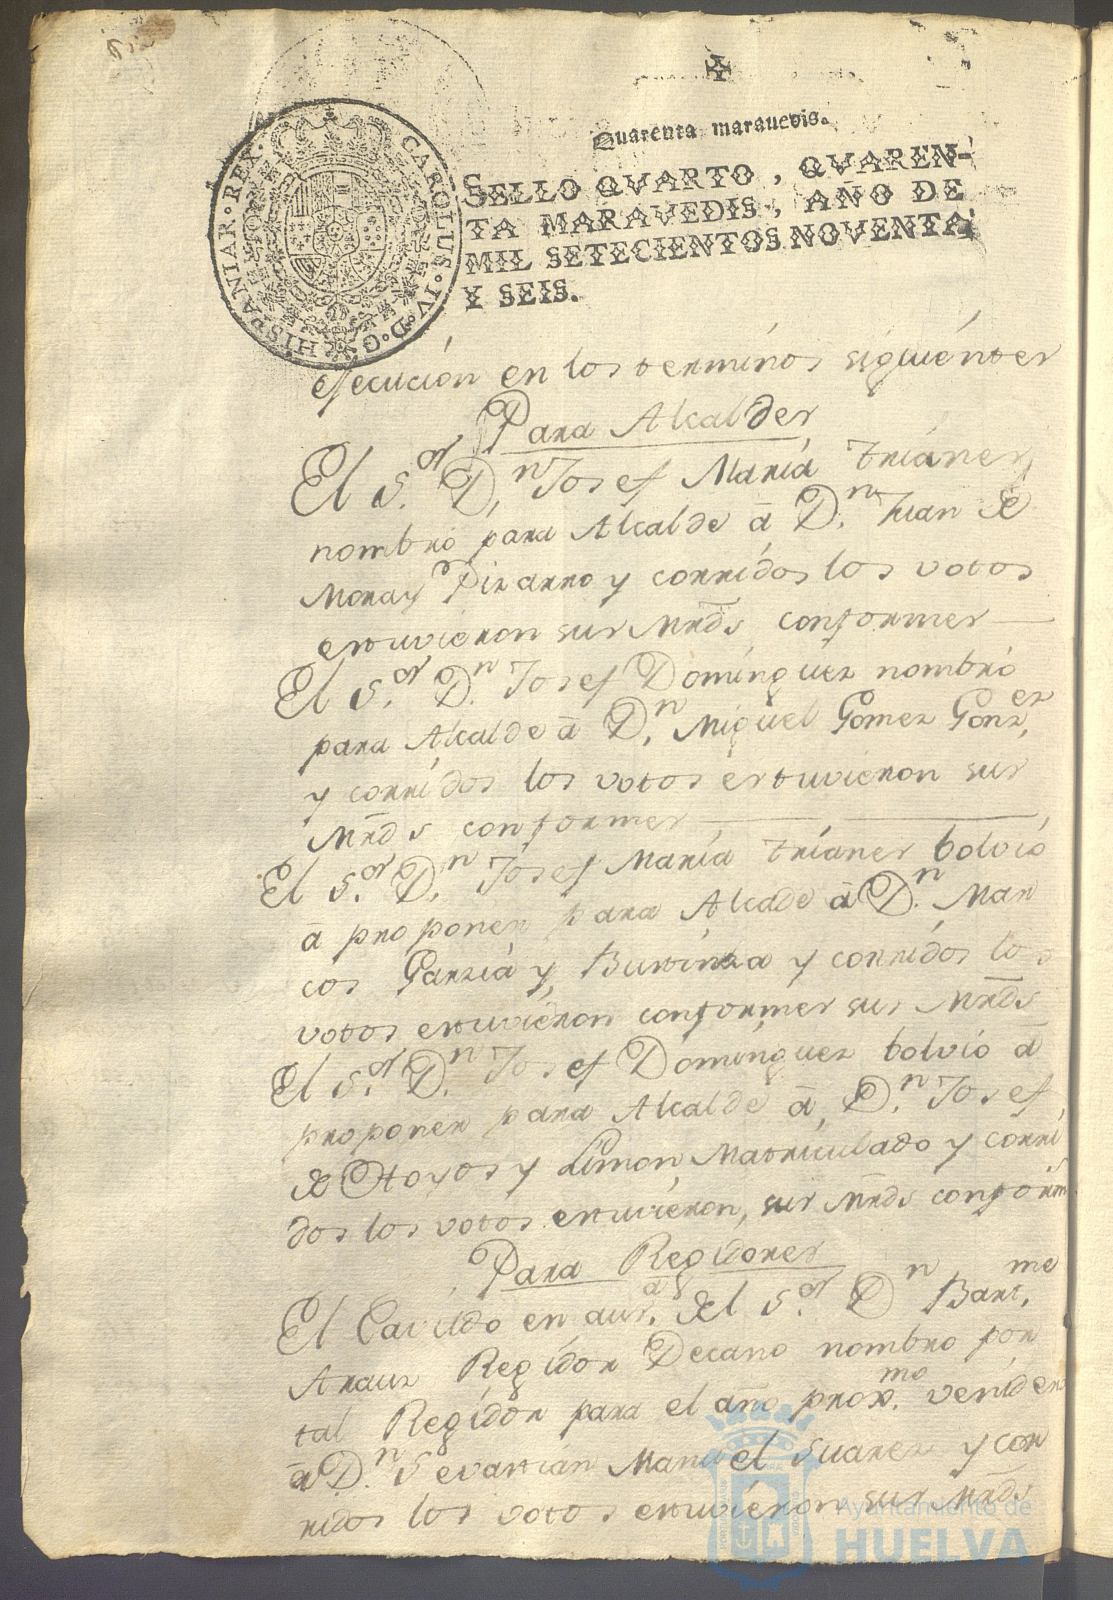 ✠
Quarenta marauedis.
SELLO QVARTO, QVAREN-
TA MARAVEDIS, AÑO DE
MIL SETECIENTOS NOVENTA
Y SEIS.
CAROLUS·IV·D·G·HISPANIAR·REX·
ejecución en los terminos siguientes
Para Alcaldes
El S.or D.n Josef María Trianes
nombró para Alcalde â D.n Juan de
Mora y Pizarro y corridos los votos
estuvieron sus Mrds conformes
El S.or D.n Josef Dominguez nombró
para Alcalde â D.n Miguel Gomez Gonz.ez
y corridos los votos estuvieron sus
Mrds conformes
El S.or D.n Josef María Trianes bolvió
â proponer para Alcade â D.n Mar
cos Garzia y y corridos los
votos estuvieron conformes sus Mrds
El S.or D.n Josef Dominguez bolvió â
proponer para Alcalde â D.n Josef
de Hoyos y Limon Matriculado y corri
dos los votos estuvieron sus Mrds conform
Para Regidores
El Cavildo en aus.a del S.or D.n Bart.me
Arauz Regidor Decano nombro por
tal Regidor para el año prox.mo venidero
â D.n Sevastian Manuel Suarez y cor
ridos los votos estuvieron sus Mrds
Ayuntamiento de
HUELVA